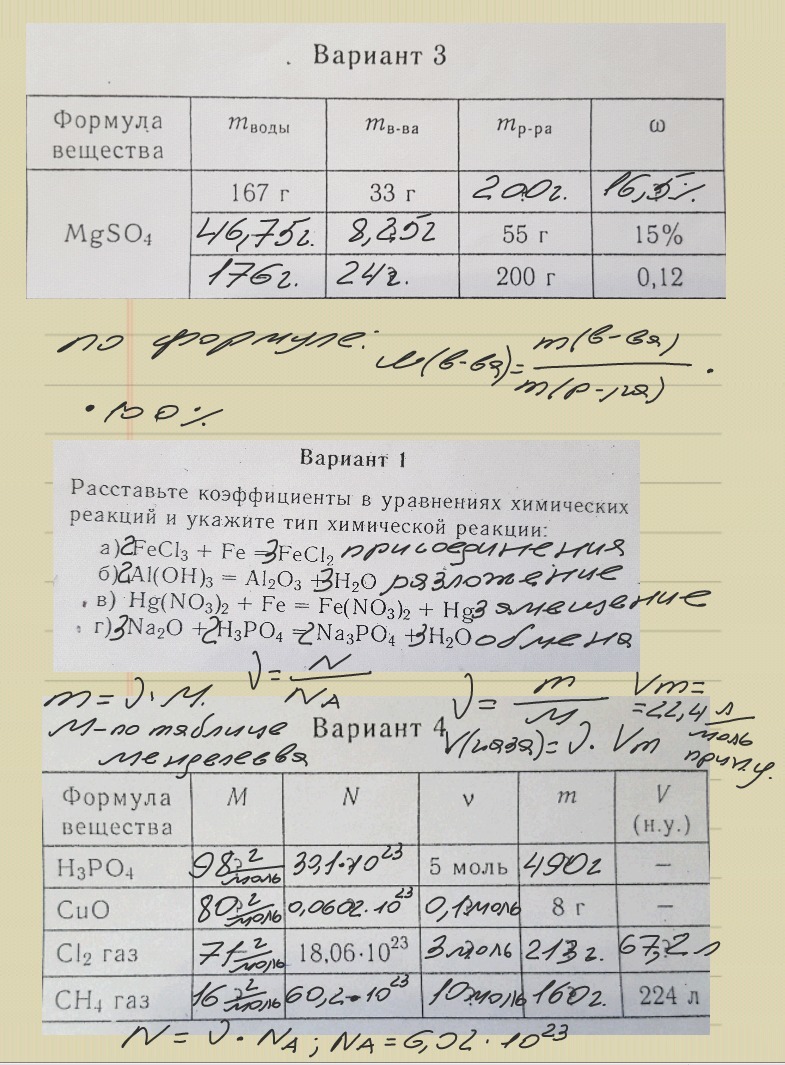 Вариант 3
Формула вещества mводы mв-ва mр-ра ω
MgSO₄ 167 г 33 г 200г. 16,5%
46,75г. 8,25г 55 г 15%
176г. 24г. 200 г 0,12
по формуле: ω(в-ва)= m(в-ва) / m(р-ра) ·
· 100%
Вариант 1
Расставьте коэффициенты в уравнениях химических
реакций и укажите тип химической реакции:
а) 2FeCl₃ + Fe = 3FeCl₂ присоединения
б) 2Al(OH)₃ = Al₂O₃ + 3H₂O разложение
в) Hg(NO₃)₂ + Fe = Fe(NO₃)₂ + Hg замещение
г) 3Na₂O + 2H₃PO₄ = 2Na₃PO₄ + 3H₂O обмена
m = ν · M. ν = N / NA ν = m / M Vm = =22,4 л/моль при н.у.
M-по таблице менделеева
V(газа)= ν · Vm
Вариант 4
Формула вещества M N ν m V (н.у.)
H₃PO₄ 98 г/моль 30,1·10²³ 5 моль 490г –
CuO 80 г/моль 0,0602·10²³ 0,1моль 8 г –
Cl₂ газ 71 г/моль 18,06·10²³ 3моль 213г. 67,2 л
CH₄ газ 16 г/моль 60,2·10²³ 10моль 160г. 224 л
N = ν · NA ; NA = 6,02 · 10²³